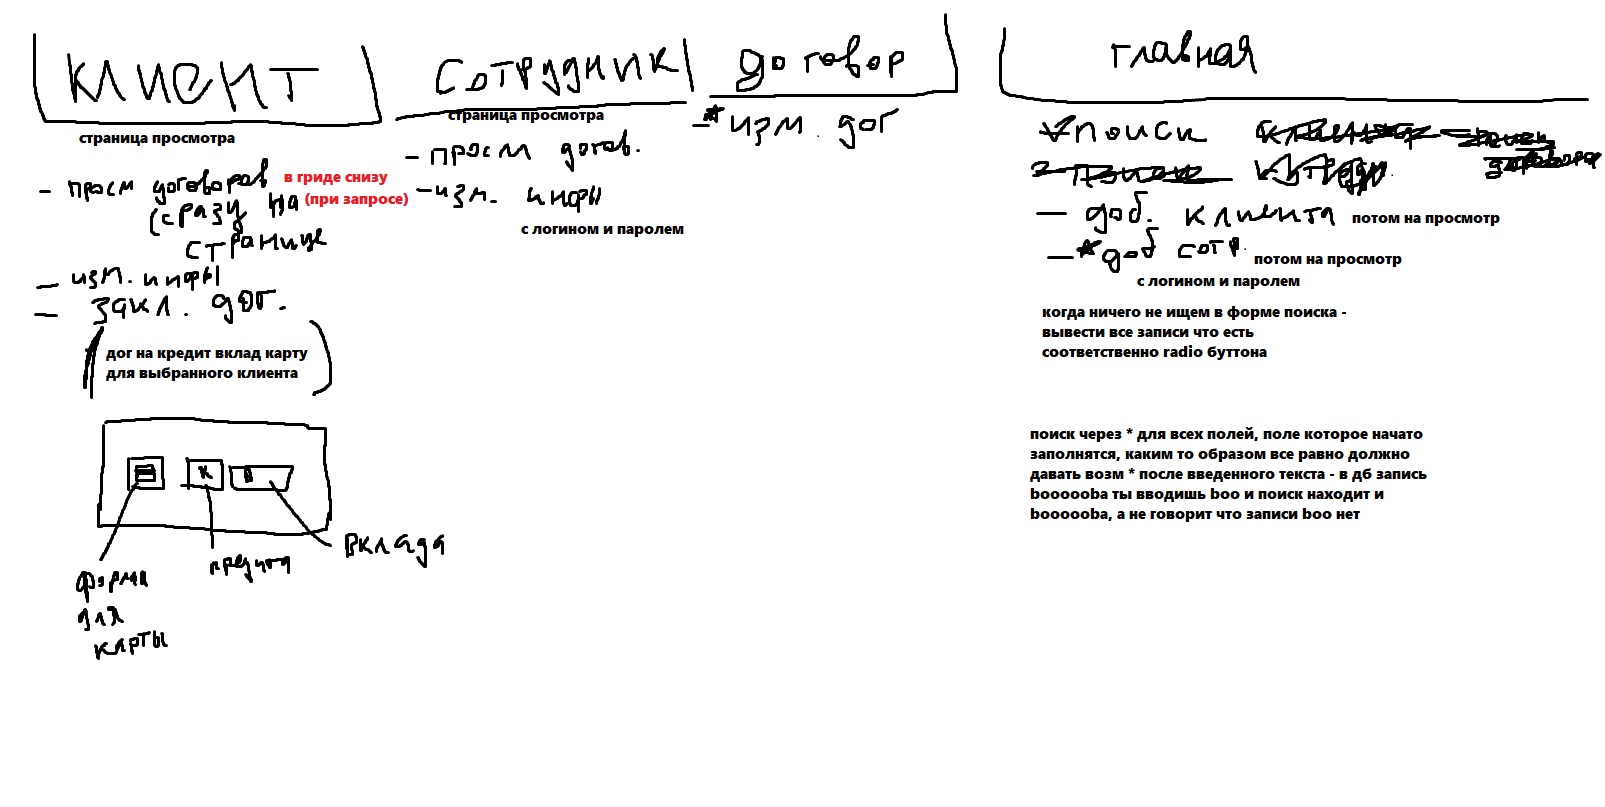 клиент
страница просмотра
- просм договоров в гриде снизу
(сразу на (при запросе)
странице
- изм. инфы
- закл. дог.
дог на кредит вклад карту
для выбранного клиента
к
форма
для
карты
кредита
вклада
Сотрудник
страница просмотра
- просм догов.
- изм. инфы
с логином и паролем
договор
-* изм. дог
главная
поиск
- доб. клиента потом на просмотр
-* доб сотр. потом на просмотр
с логином и паролем
когда ничего не ищем в форме поиска -
вывести все записи что есть
соответственно radio буттона
поиск через * для всех полей, поле которое начато
заполнятся, каким то образом все равно должно
давать возм * после введенного текста - в дб запись
boooooba ты вводишь boo и поиск находит и
boooooba, а не говорит что записи boo нет